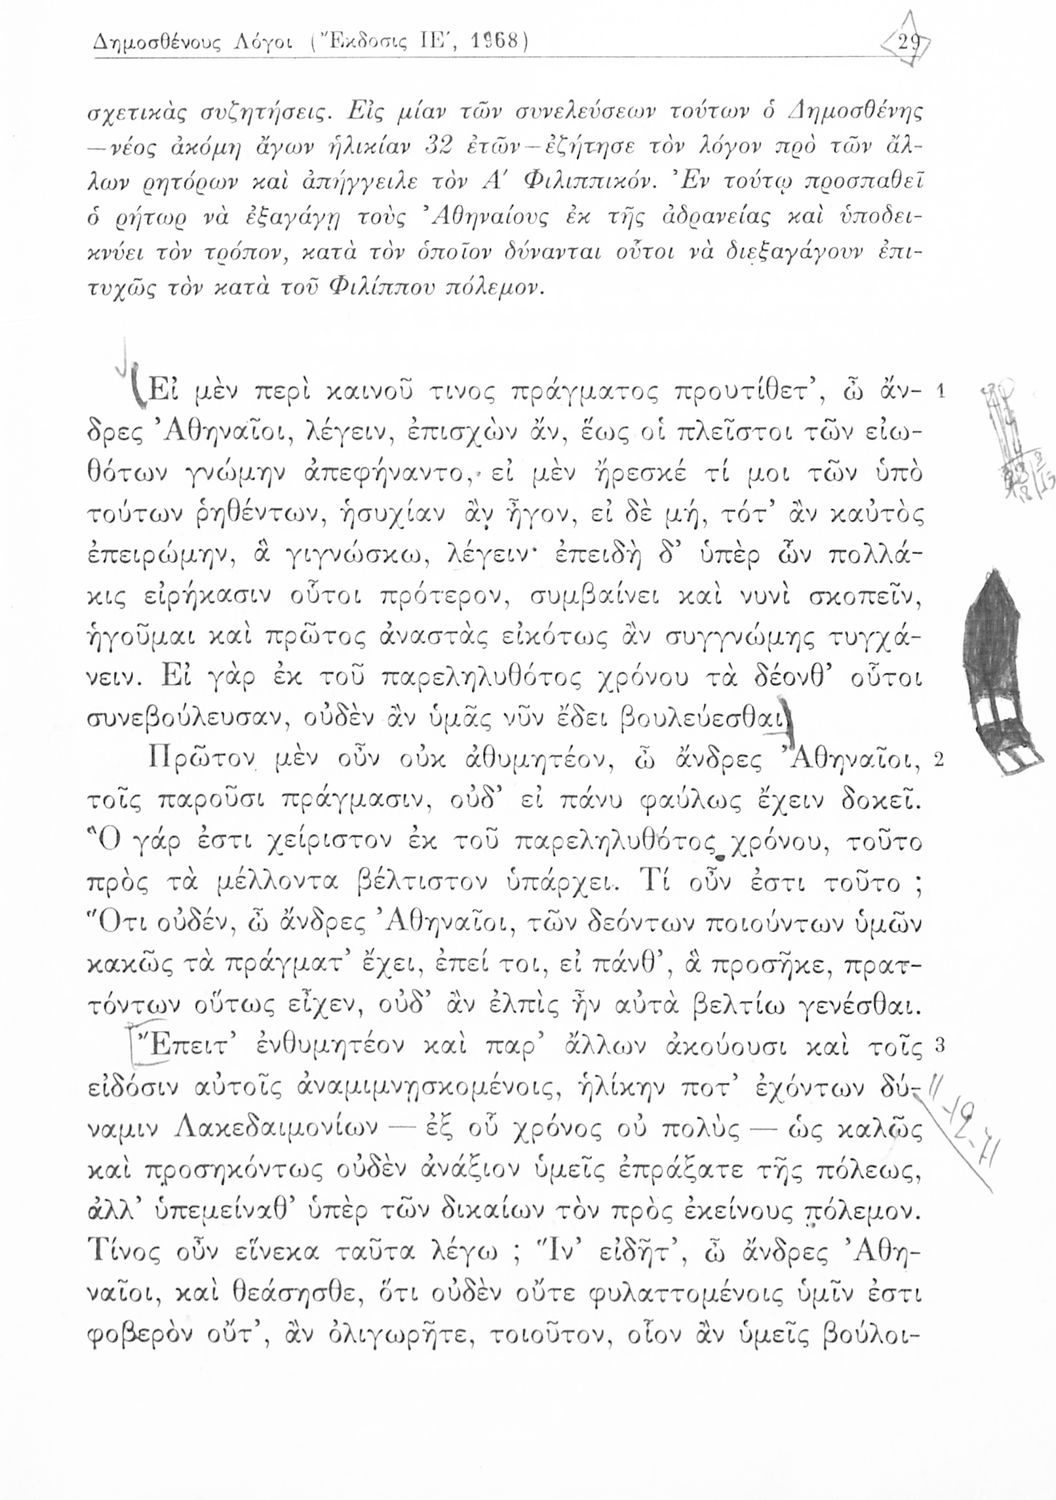 Δημοσθένους Λόγοι (Ἔκδοσις ΙΕ΄, 1968)
29
σχετικὰς συζητήσεις. Εἰς μίαν τῶν συνελεύσεων τούτων ὁ Δημοσθένης
—νέος ἀκόμη ἄγων ἡλικίαν 32 ἐτῶν—ἐζήτησε τὸν λόγον πρὸ τῶν ἄλ-
λων ρητόρων καὶ ἀπήγγειλε τὸν Α΄ Φιλιππικόν. Ἐν τούτῳ προσπαθεῖ
ὁ ρήτωρ νὰ ἐξαγάγῃ τοὺς Ἀθηναίους ἐκ τῆς ἀδρανείας καὶ ὑποδει-
κνύει τὸν τρόπον, κατὰ τὸν ὁποῖον δύνανται οὗτοι νὰ διεξαγάγουν ἐπι-
τυχῶς τὸν κατὰ τοῦ Φιλίππου πόλεμον.
Εἰ μὲν περὶ καινοῦ τινος πράγματος προυτίθετ’, ὦ ἄν- 1
δρες Ἀθηναῖοι, λέγειν, ἐπισχὼν ἄν, ἕως οἱ πλεῖστοι τῶν εἰω-
θότων γνώμην ἀπεφήναντο, εἰ μὲν ἤρεσκέ τί μοι τῶν ὑπὸ
τούτων ῥηθέντων, ἡσυχίαν ἂν ἦγον, εἰ δὲ μή, τότ’ ἂν καὐτὸς
ἐπειρώμην, ἃ γιγνώσκω, λέγειν· ἐπειδὴ δ’ ὑπὲρ ὧν πολλά-
κις εἰρήκασιν οὗτοι πρότερον, συμβαίνει καὶ νυνὶ σκοπεῖν,
ἡγοῦμαι καὶ πρῶτος ἀναστὰς εἰκότως ἂν συγγνώμης τυγχά-
νειν. Εἰ γὰρ ἐκ τοῦ παρεληλυθότος χρόνου τὰ δέονθ’ οὗτοι
συνεβούλευσαν, οὐδὲν ἂν ὑμᾶς νῦν ἔδει βουλεύεσθαι
Πρῶτον μὲν οὖν οὐκ ἀθυμητέον, ὦ ἄνδρες Ἀθηναῖοι, 2
τοῖς παροῦσι πράγμασιν, οὐδ’ εἰ πάνυ φαύλως ἔχειν δοκεῖ.
Ὃ γάρ ἐστι χείριστον ἐκ τοῦ παρεληλυθότος χρόνου, τοῦτο
πρὸς τὰ μέλλοντα βέλτιστον ὑπάρχει. Τί οὖν ἐστι τοῦτο ;
Ὅτι οὐδέν, ὦ ἄνδρες Ἀθηναῖοι, τῶν δεόντων ποιούντων ὑμῶν
κακῶς τὰ πράγματ’ ἔχει, ἐπεί τοι, εἰ πάνθ’, ἃ προσῆκε, πρατ-
τόντων οὕτως εἶχεν, οὐδ’ ἂν ἐλπὶς ἦν αὐτὰ βελτίω γενέσθαι.
Ἔπειτ’ ἐνθυμητέον καὶ παρ’ ἄλλων ἀκούουσι καὶ τοῖς 3
εἰδόσιν αὐτοῖς ἀναμιμνῃσκομένοις, ἡλίκην ποτ’ ἐχόντων δύ-
ναμιν Λακεδαιμονίων — ἐξ οὗ χρόνος οὐ πολὺς — ὡς καλῶς
καὶ προσηκόντως οὐδὲν ἀνάξιον ὑμεῖς ἐπράξατε τῆς πόλεως,
ἀλλ’ ὑπεμείναθ’ ὑπὲρ τῶν δικαίων τὸν πρὸς ἐκείνους πόλεμον.
Τίνος οὖν εἵνεκα ταῦτα λέγω ; Ἵν’ εἰδῆτ’, ὦ ἄνδρες Ἀθη-
ναῖοι, καὶ θεάσησθε, ὅτι οὐδὲν οὔτε φυλαττομένοις ὑμῖν ἐστι
φοβερὸν οὔτ’, ἂν ὀλιγωρῆτε, τοιοῦτον, οἷον ἂν ὑμεῖς βούλοι-
11-12-71